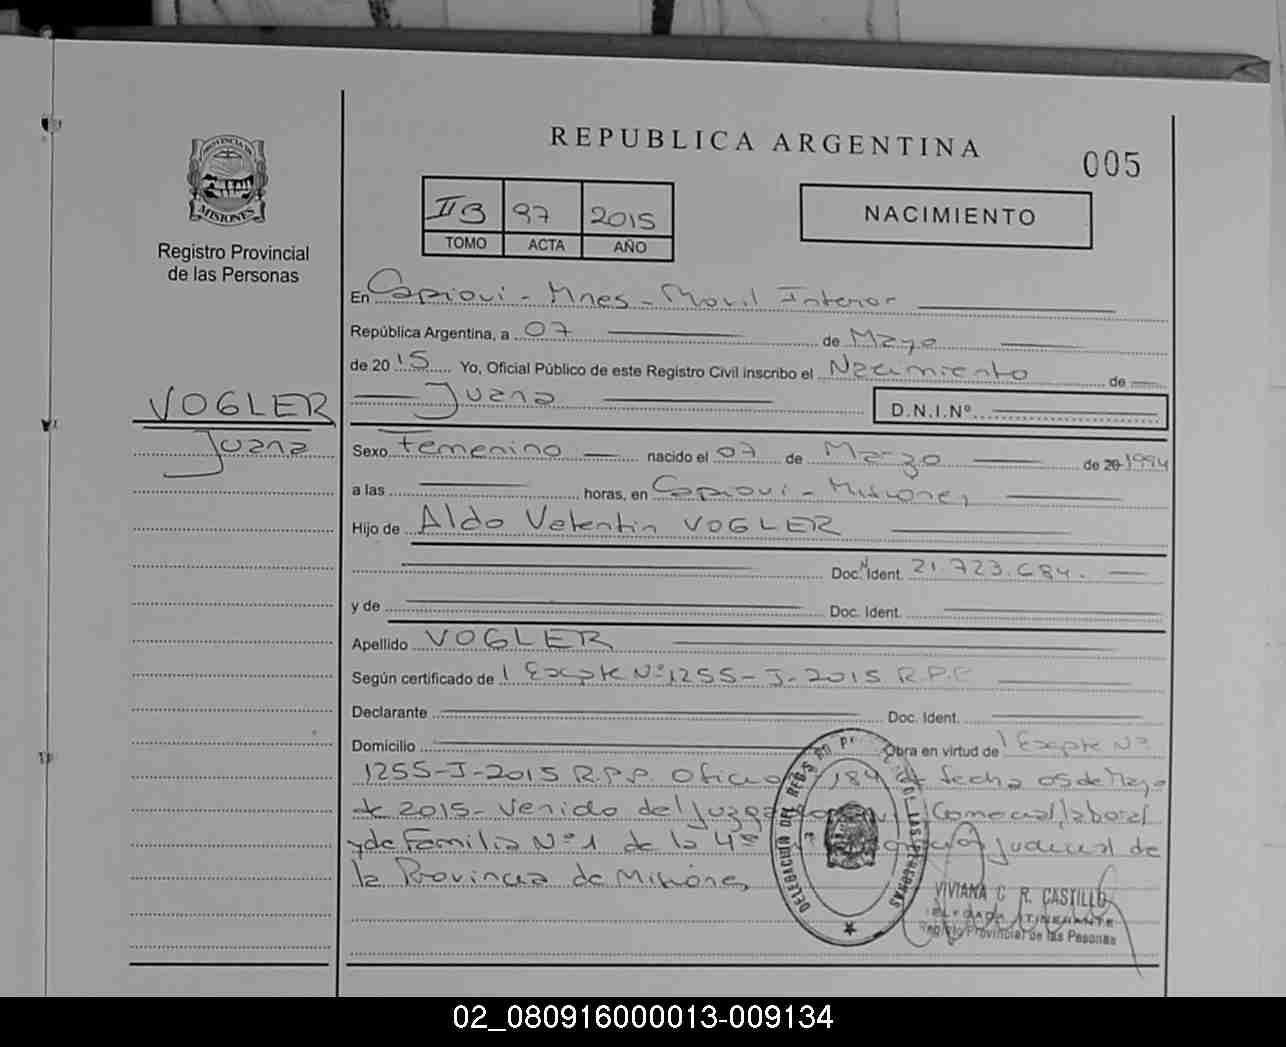 PROVINCIA DE
MISIONES
Registro Provincial
de las Personas
VOGLER
Juana
REPUBLICA ARGENTINA
005
II B 97 2015
TOMO ACTA AÑO
NACIMIENTO
En Capiovi - Mnes - Movil Interior
República Argentina, a 07 de Mayo
de 2015 Yo, Oficial Público de este Registro Civil inscribo el Nacimiento de
Juana D.N.I.Nº
Sexo Femenino nacido el 07 de Marzo de 20 1994
a las horas, en Capiovi - Misiones,
Hijo de Aldo Valentin VOGLER
Doc. Ident. 21.723.684.
y de Doc. Ident.
Apellido VOGLER
Según certificado de Expte Nº 1255-J-2015 R.P.P.
Declarante Doc. Ident.
Domicilio Obra en virtud de Expte Nº
1255-J-2015 R.P.P. Oficio 184 de fecha 05 de Mayo
de 2015- Venido del Juzgado Comercial, laboral
y de Familia Nº 1 de la 4ª Judicial de
la Provincia de Misiones
DELEGACION DEL REG DE LAS PERSONAS
VIVIANA C. R. CASTILLO
DELEGADA ITINERANTE
Registro Provincial de las Pesonas
02_080916000013-009134